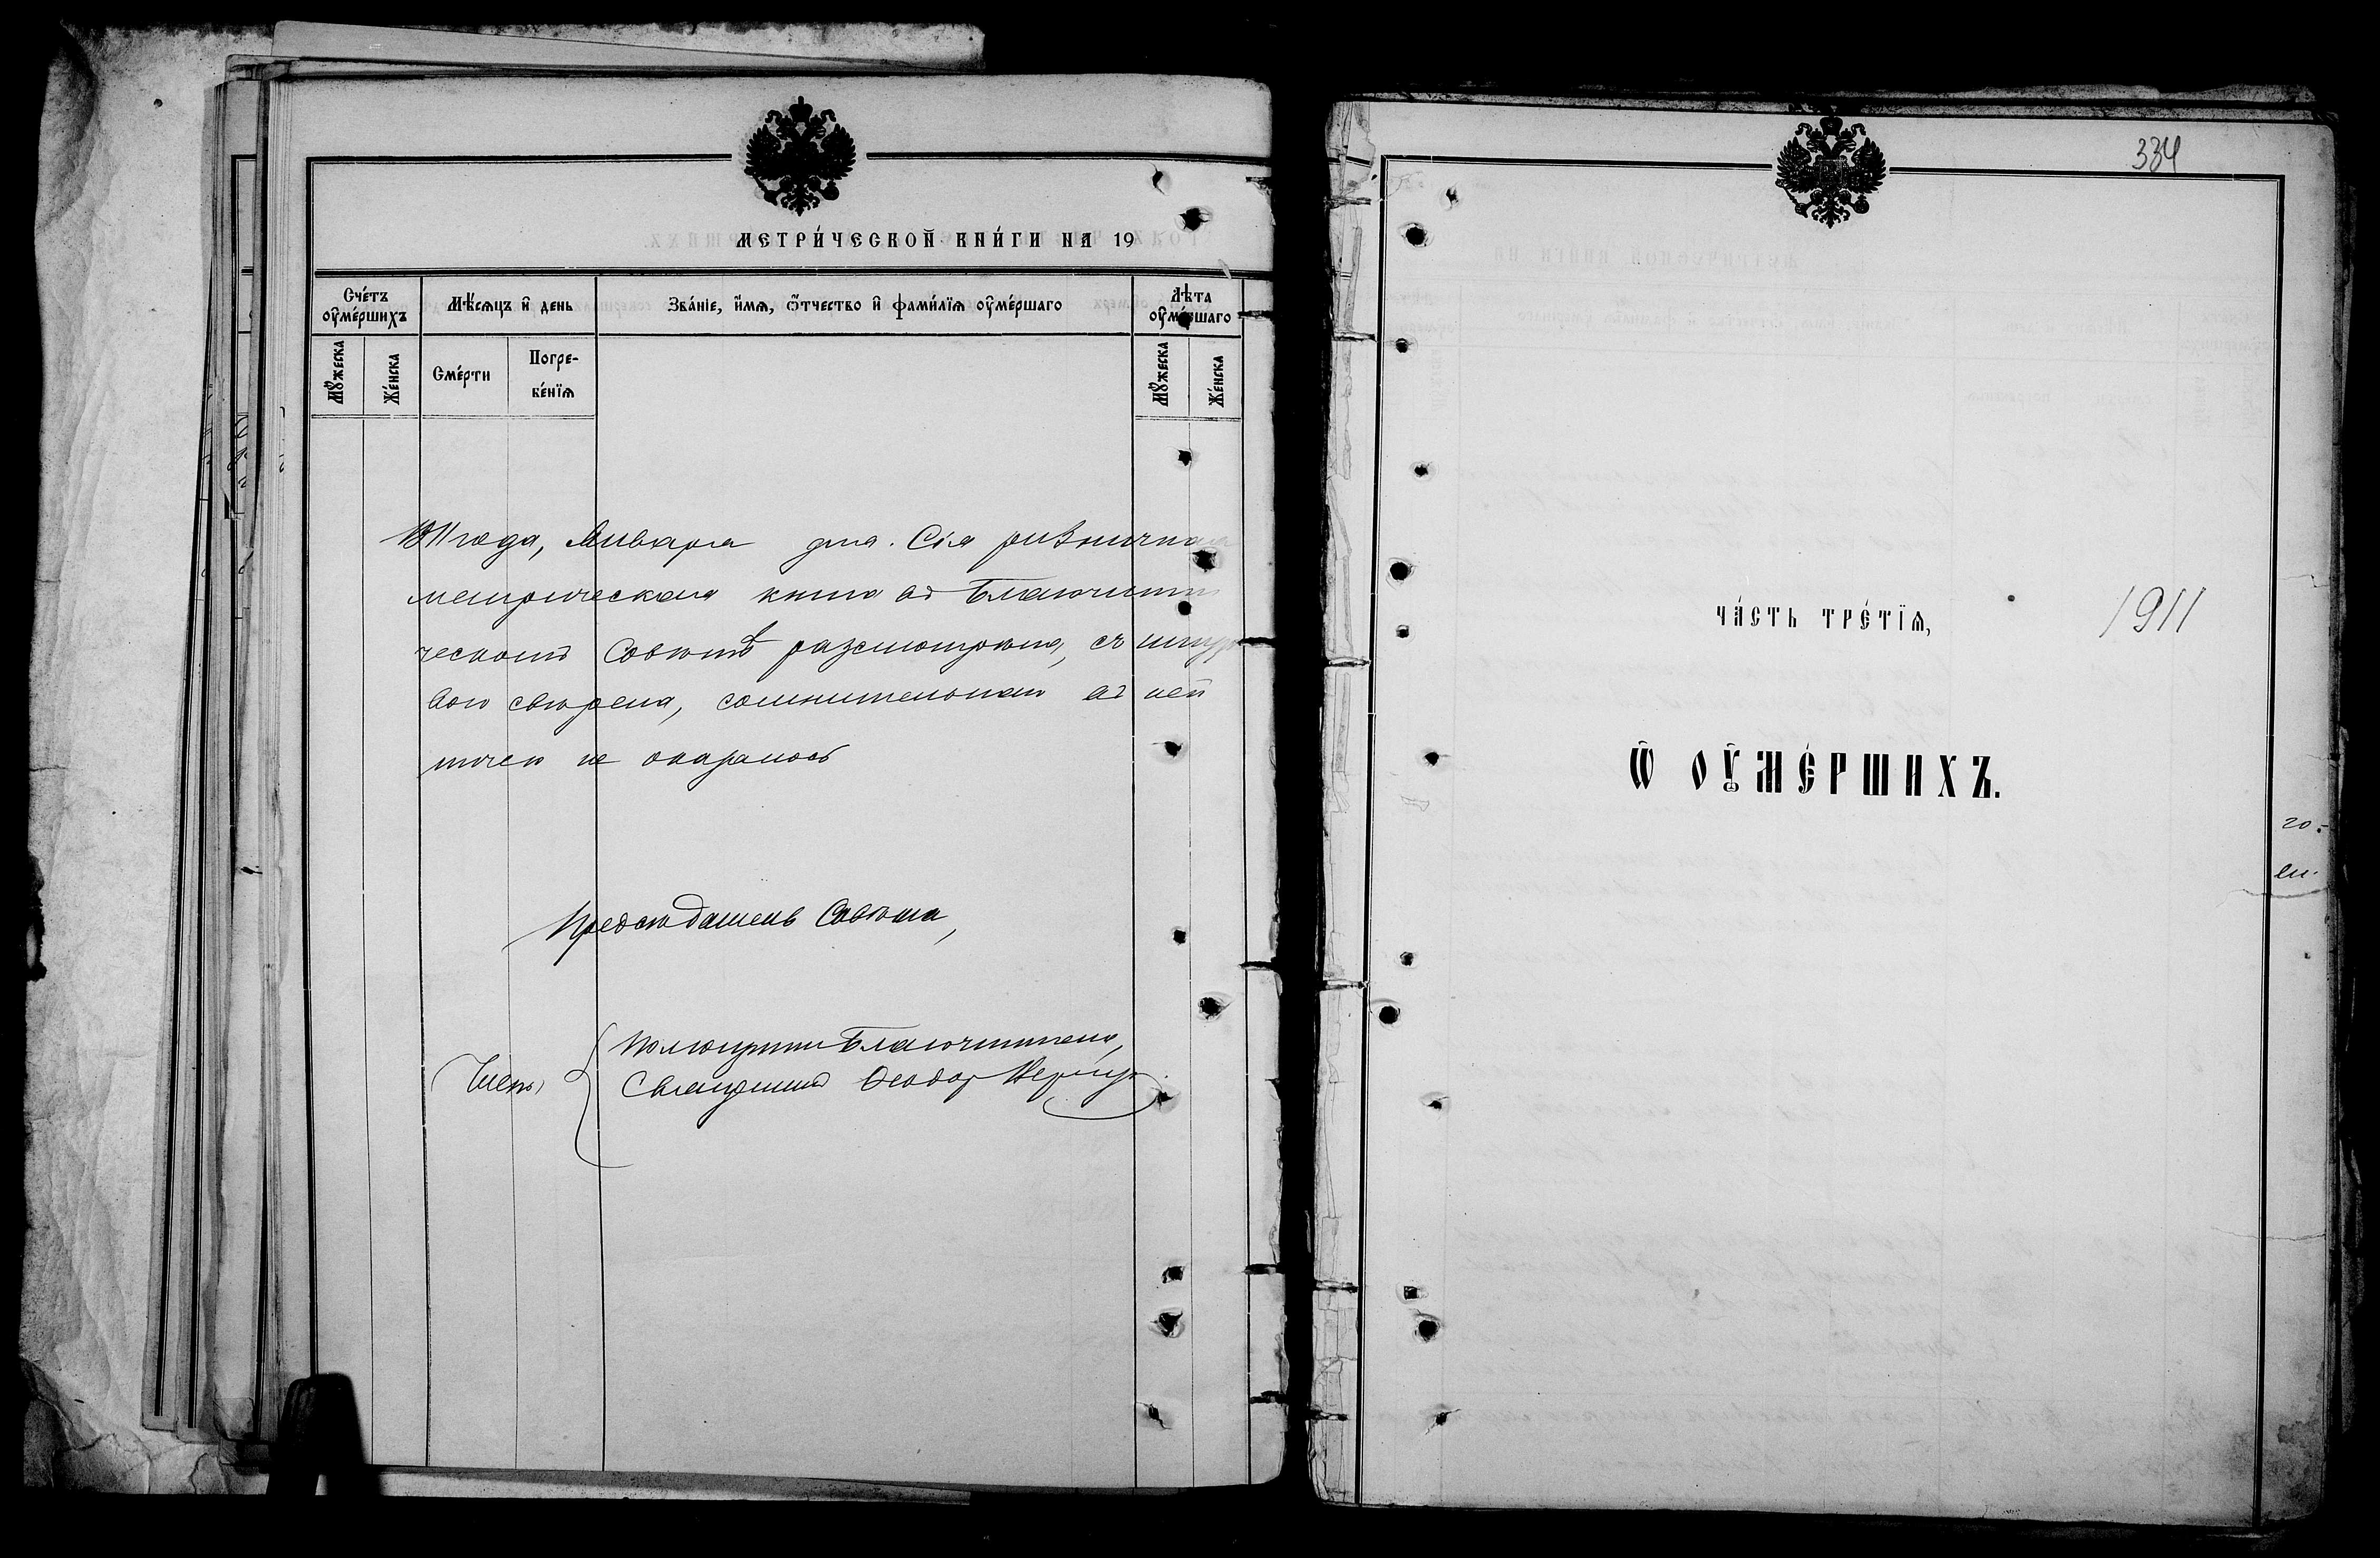 МЕТРИ́ЧЕСКОЙ КНИ́ГИ НА 19
Сче́тъ ᲂу҆ме́ршихъ
Мѣ́сяцъ и҆ день
Зва́нїе, и҆́мѧ, ѻ҆́тчество и҆ фами́лїѧ ᲂу҆ме́ршаго
Лѣ́та ᲂу҆ме́ршаго
Мꙋ́жеска
Же́нска
Сме́рти
Погре-
бе́нїѧ
Мꙋ́жеска
Же́нска
года, Января дня. Сія ризничная
метрическая книга въ Благочинни
ческомъ Совѣтѣ разсмотрѣна, съ
вою свѣрена, сомнительнаго въ ней
ничего не оказалось
Предсѣдатель Совѣта,
Члены
Помощникъ Благочиннаго,
Священникъ Ѳеодоръ
334
ЧА́СТЬ ТРЕ́ТЇѦ,
1911
Ѽ ОУ҆МЕ́РШИХЪ.
го.